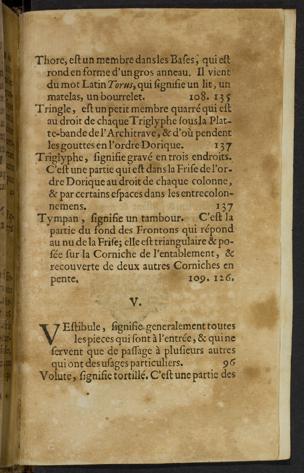 Thore, est un membre dans les Bases, qui est
rond en forme d'un gros anneau. Il vient
du mot Latin Torus, qui signifie un lit, un
matelas, un bourrelet. 108. 135
Tringle, est un petit membre quarré qui est
au droit de chaque Triglyphe sous la Plat-
te-bande de l'Architrave, & d'où pendent
les gouttes en l'ordre Dorique. 137
Triglyphe, signifie gravé en trois endroits.
C'est une partie qui est dans la Frise de l'or-
dre Dorique au droit de chaque colonne,
& par certains espaces dans les entrecolon-
nemens. 137
Tympan, signifie un tambour. C'est la
partie du fond des Frontons qui répond
au nu de la Frise; elle est triangulaire & po-
sée sur la Corniche de l'entablement, &
recouverte de deux autres Corniches en
pente. 109. 126.
V.
VEstibule, signifie generalement toutes
les pieces qui sont à l'entrée, & qui ne
servent que de passage à plusieurs autres
qui ont des usages particuliers. 96
Volute, signifie tortillé. C'est une partie des